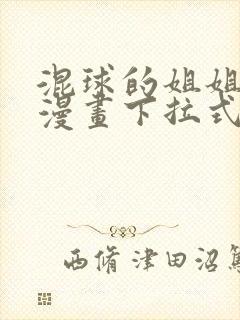 混球的姐姐
漫畫下拉式
西脩 津田沼篤